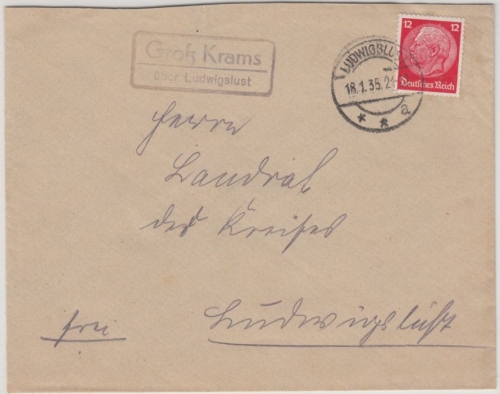 Groß Krams
über Ludwigslust
LUDWIGSLUST
18.1.35.2
a
12 12
Deutsches Reich
Herrn
Landrat
des Kreises
Ludwigslust
frei